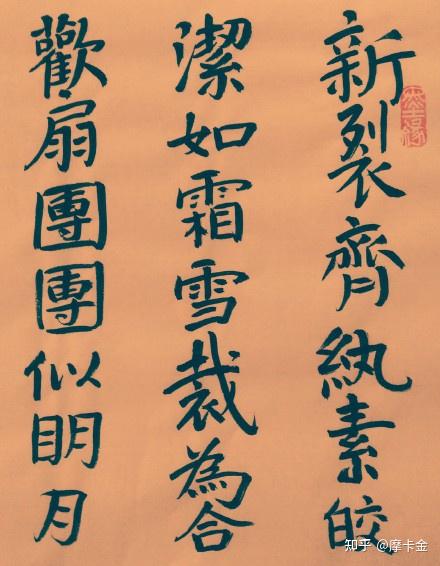 新裂齊紈素皎
潔如霜雪裁為合
歡扇團團似明月
知乎 @摩卡金